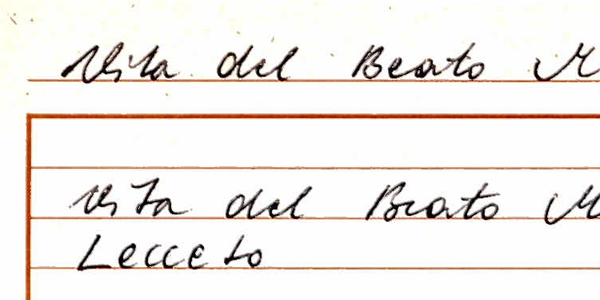 Vita del Beato M
Vita del Beato M
Lecceto